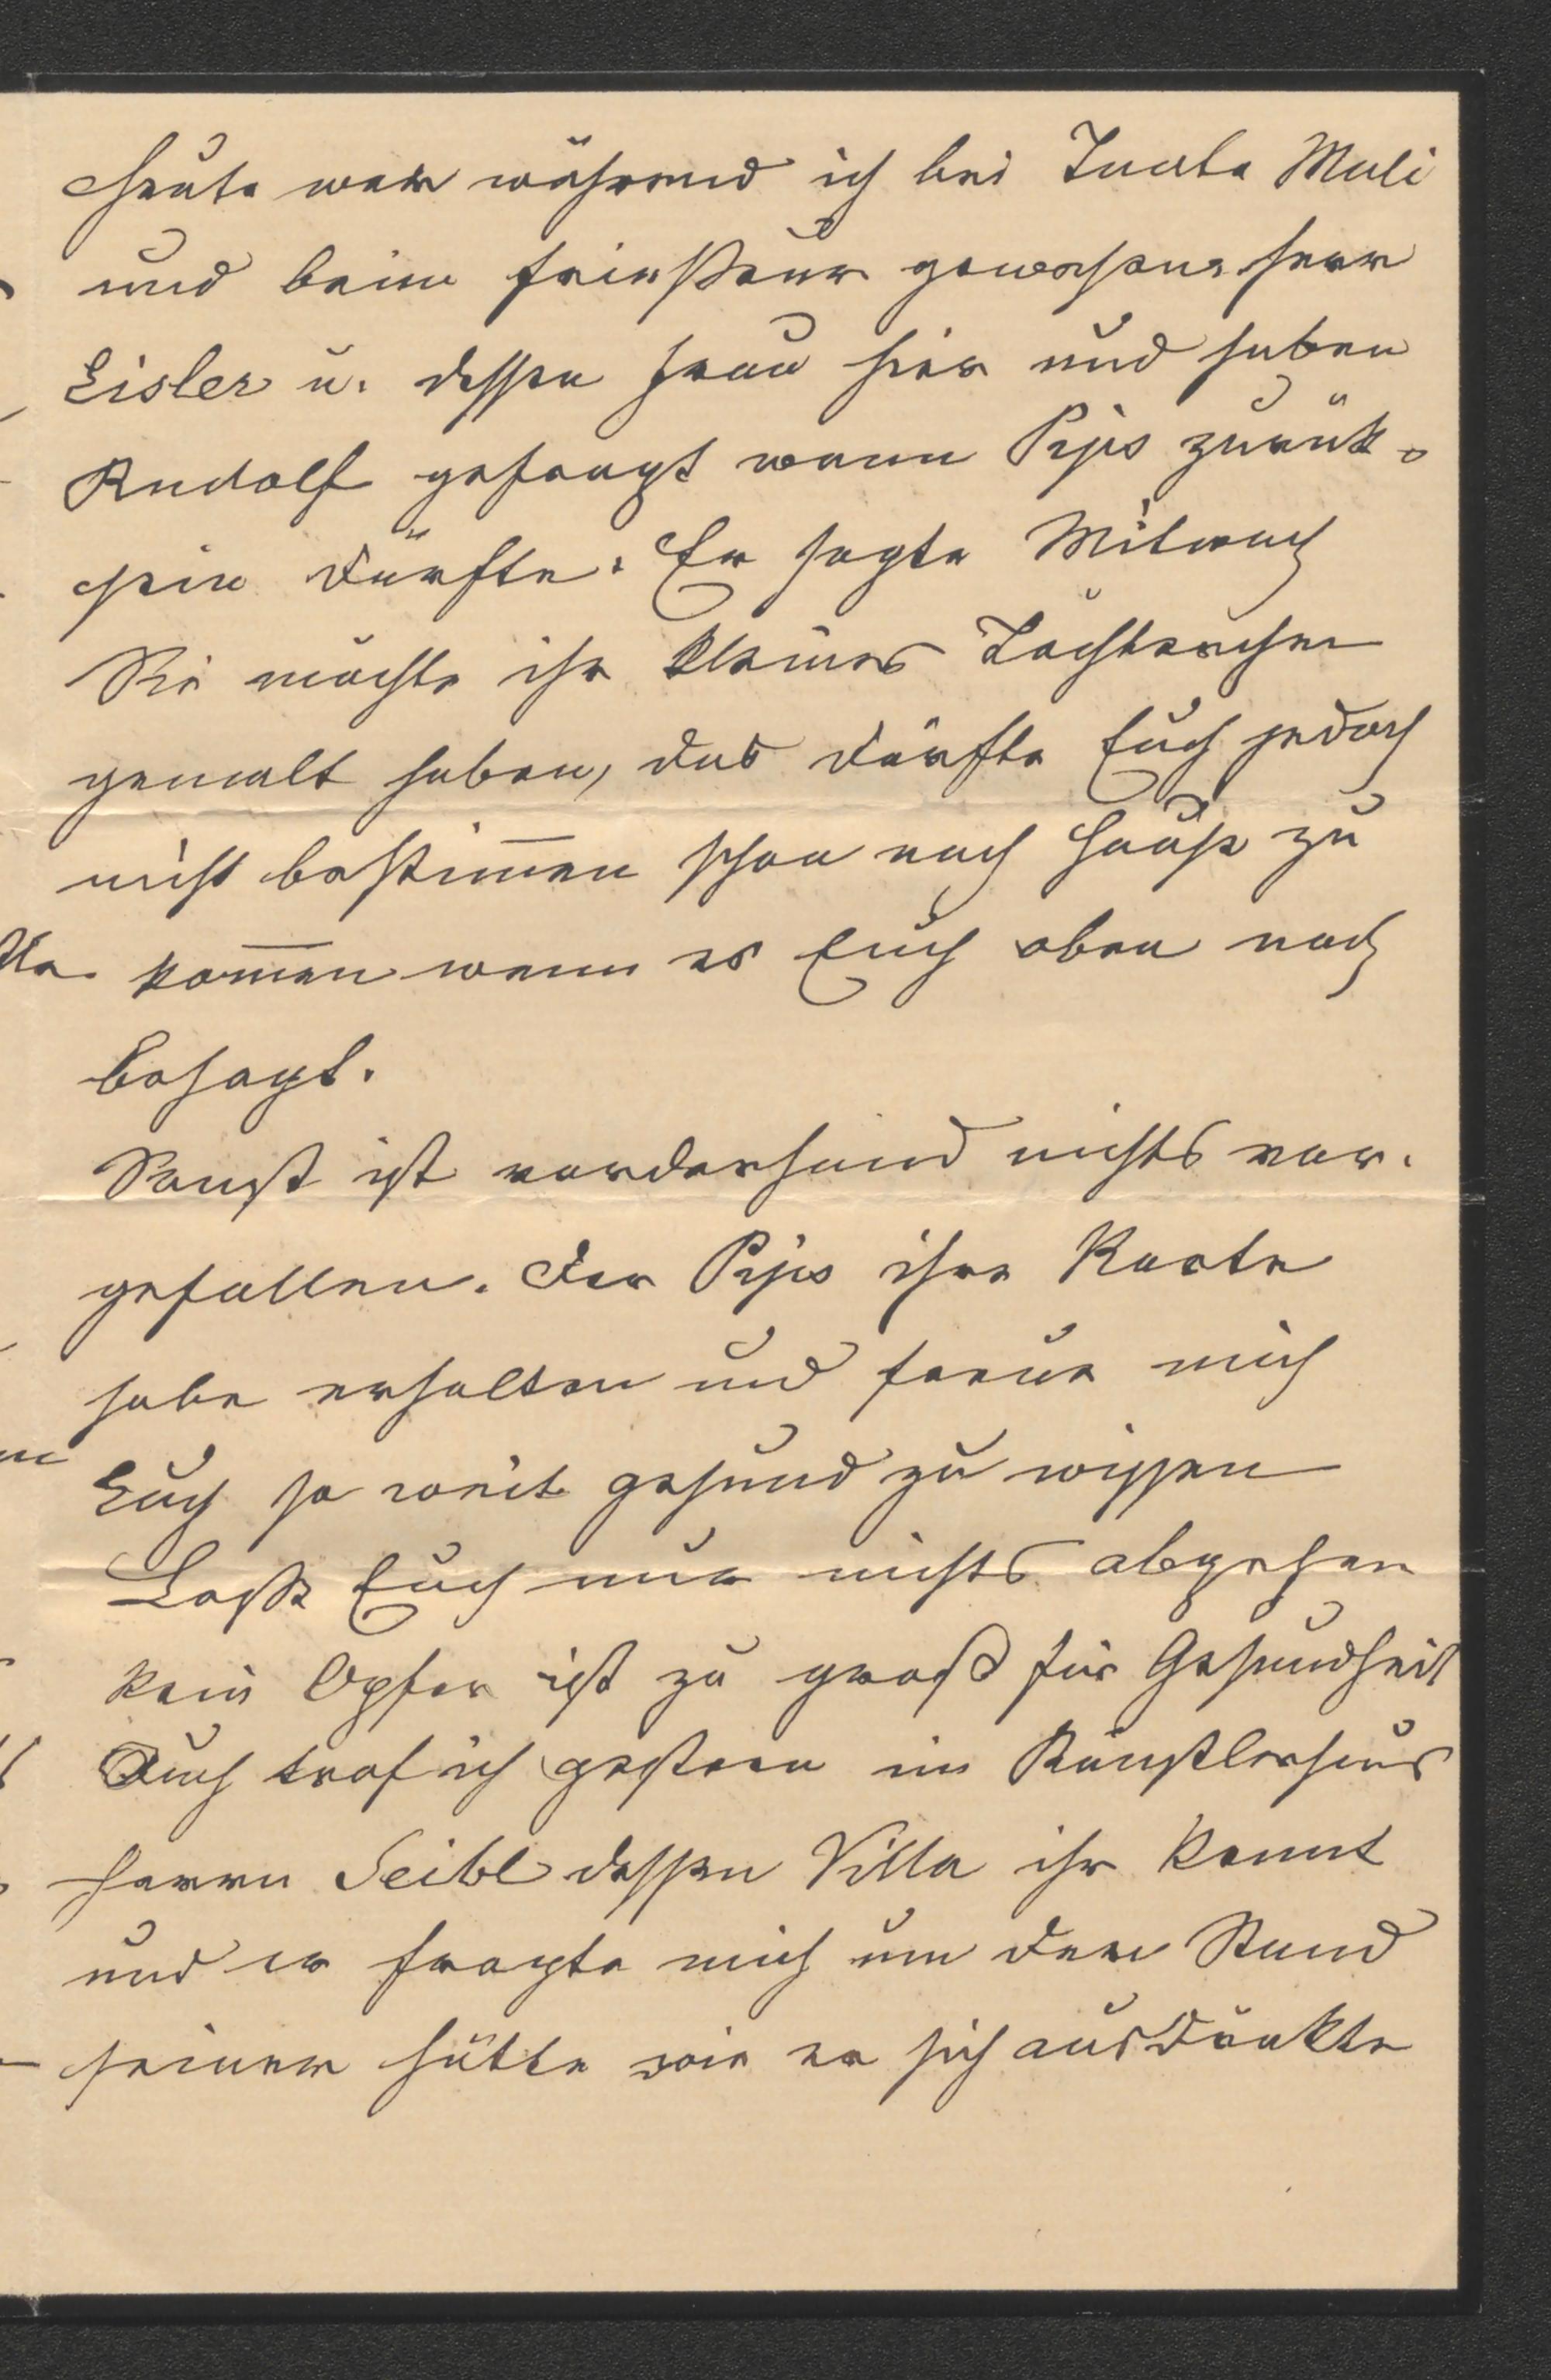 Heute war während ich bei Tante Mali
und beim Frießeur gewesen Herr
Eisler u. dessen Frau hier und haben
Rudolf gefragt wenn Pips zurük
sein dürfte. Er sagte Mitwoch
Sie möchte ihr kleines Töchterchen
gemalt haben, das dürfte Euch jedoch
nicht bestim̅en schon nach Hause zu
kom̅en wenn es Euch oben noch
behagt.
Sonst ist vorderhand nichts vor.
gefallen. Der Pips ihre Karte
habe erhalten und freue mich
Euch so weit gesund zu wissen
Laßt Euch nur nichts abgehen
kein Opfer ist zu groß für Gesundheit
Auch traf ich gestern im Künstlerhaus
Herrn Seibl dessen Villa ihr kennt
und er fragte mich um den Stand
seiner Hütte wie er sich ausdrükte